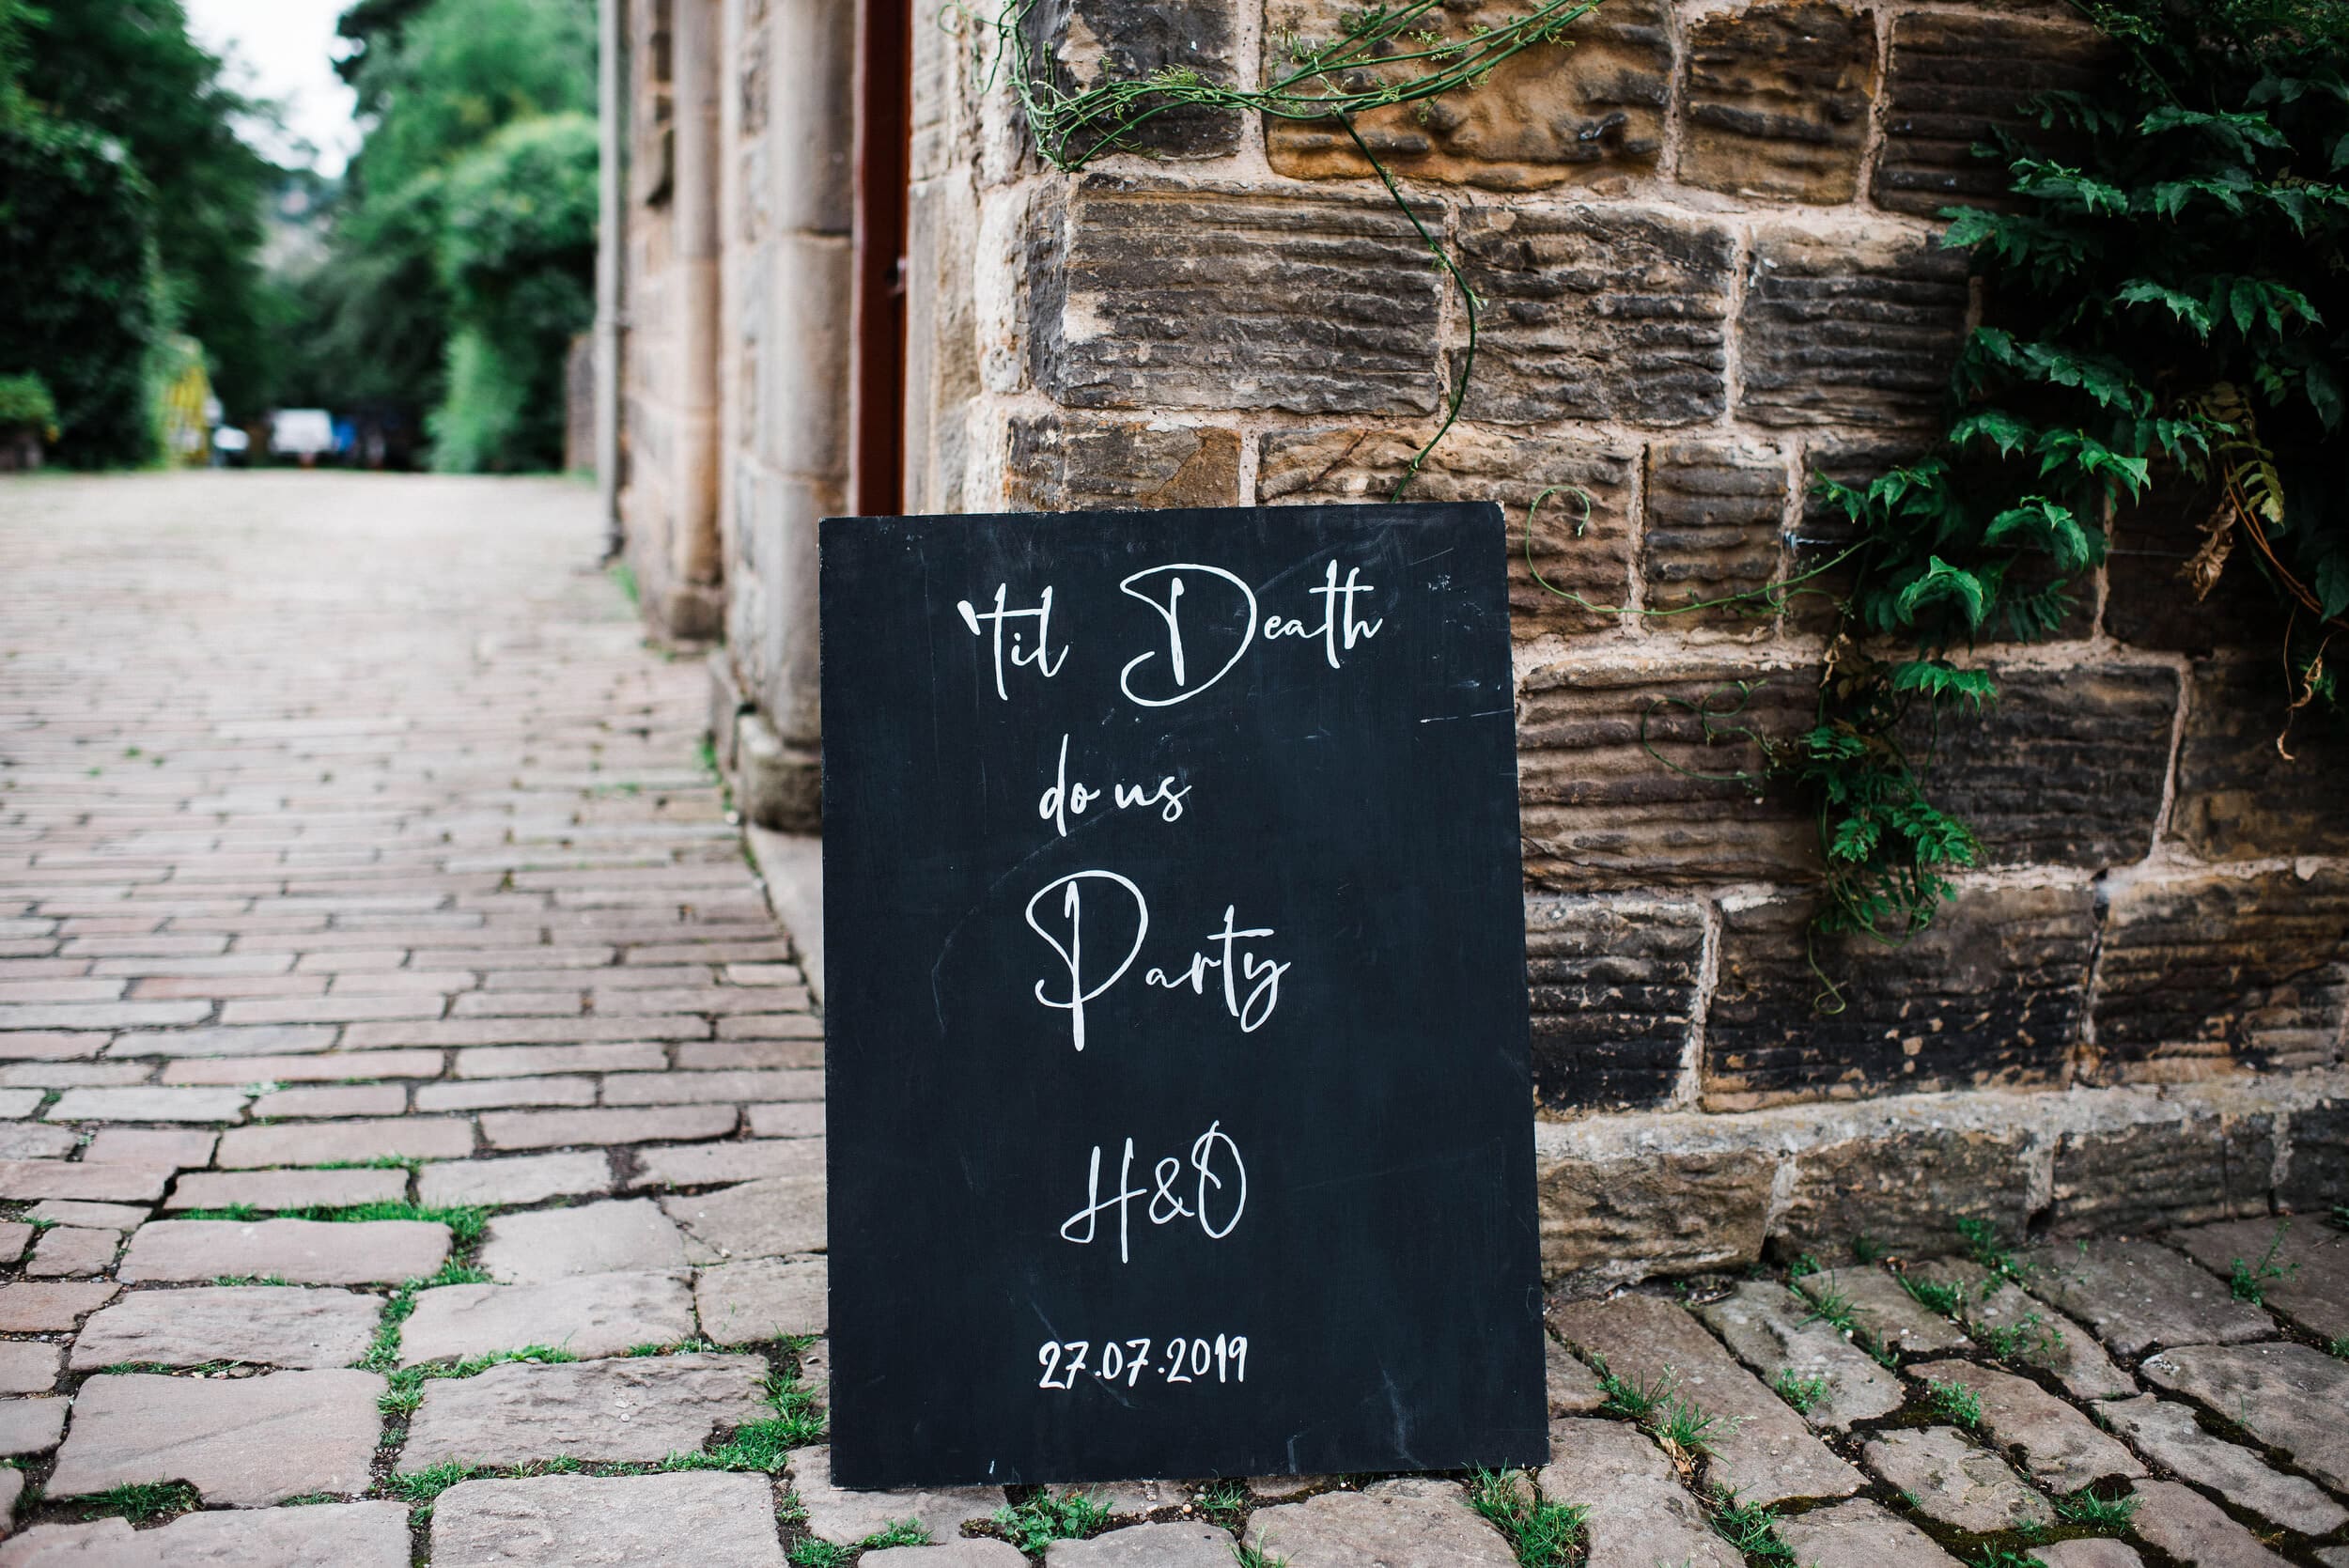 'til Death
do us
Party
H&O
27.07.2019